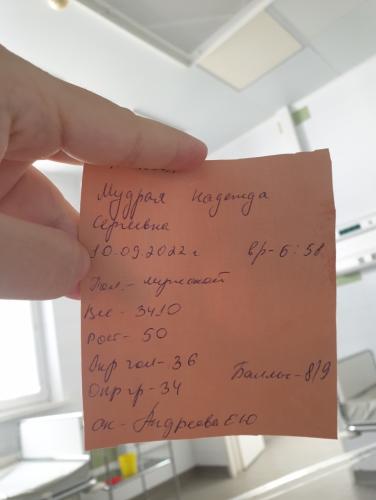 Мудрая Надежда
Сергеевна
10.09.2022 г вр - 6:58
Пол - мужской
Вес - 3410
Рост - 50
Окр гол - 36
Окр гр - 34 Баллы - 8/9
ак - Андреева Е Ю